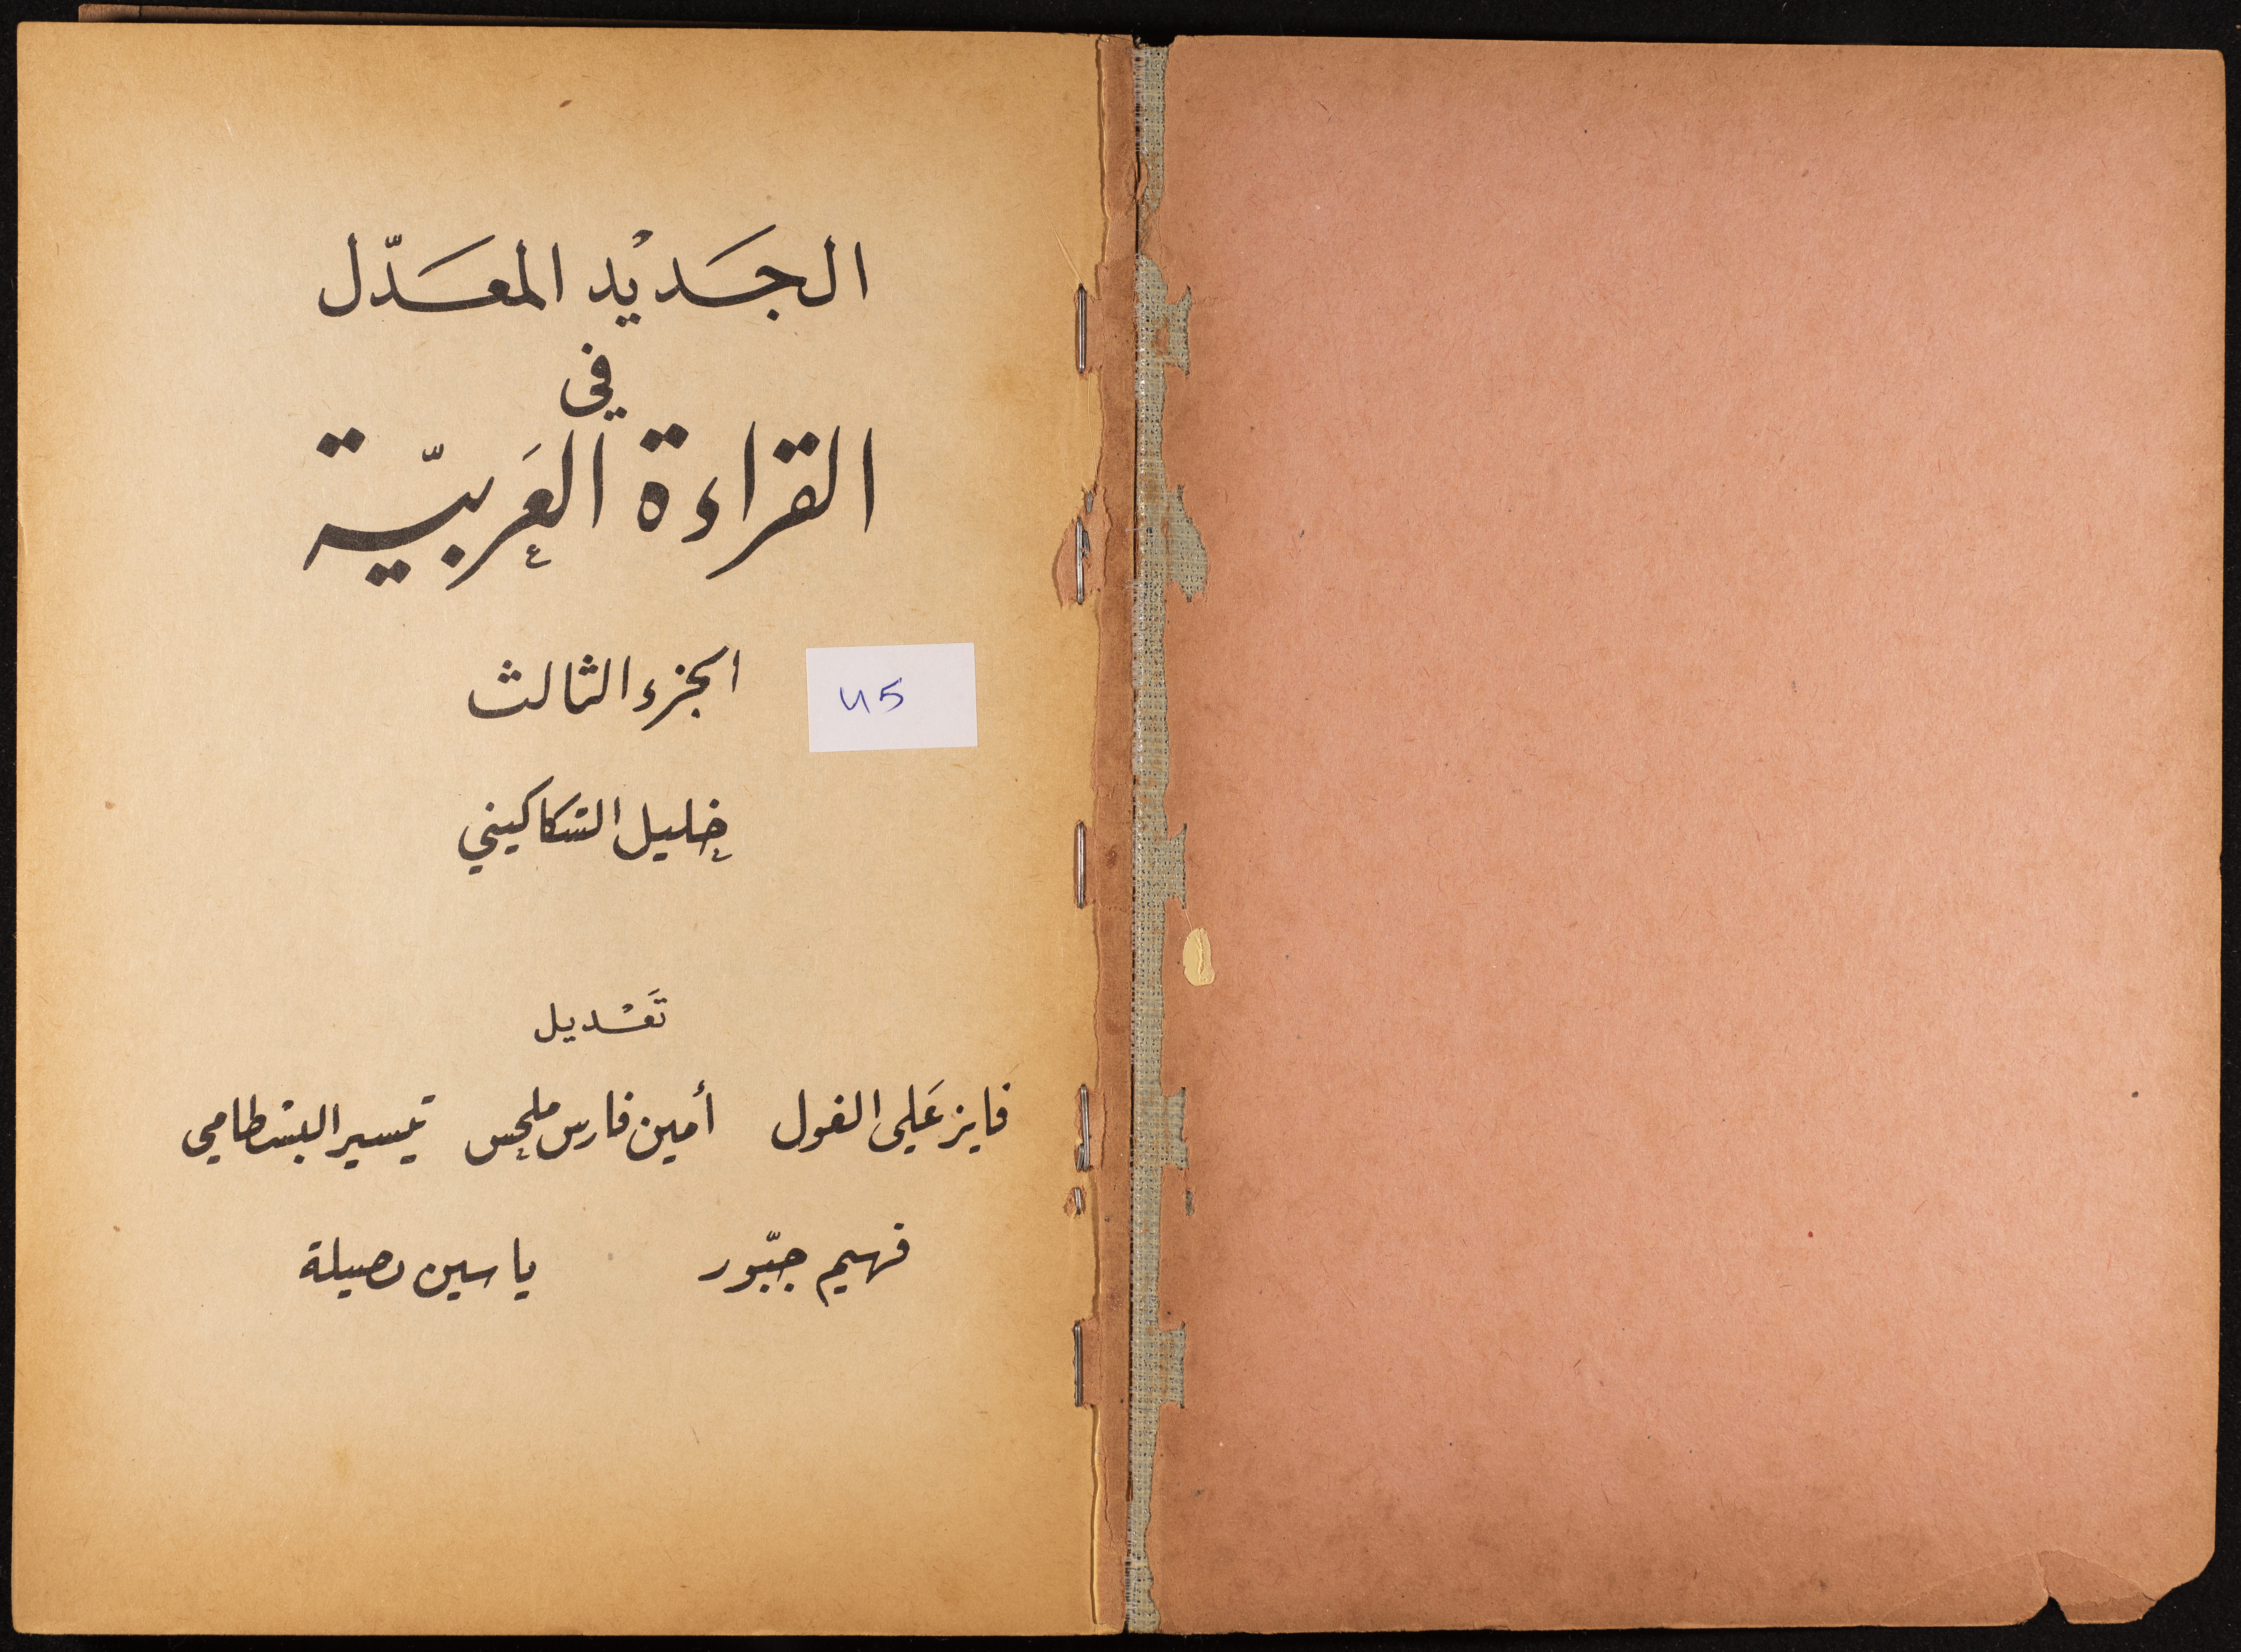 الجَديْد المعَدّل
في
القراءة العَربيّة
الجزء الثالث
45
خليل السّكاكيني
تَعْديل
فايز عَلي الغول أمين فارس ملحس تيسير البسْطامي
فهيم جبّور ياسين نصيلة